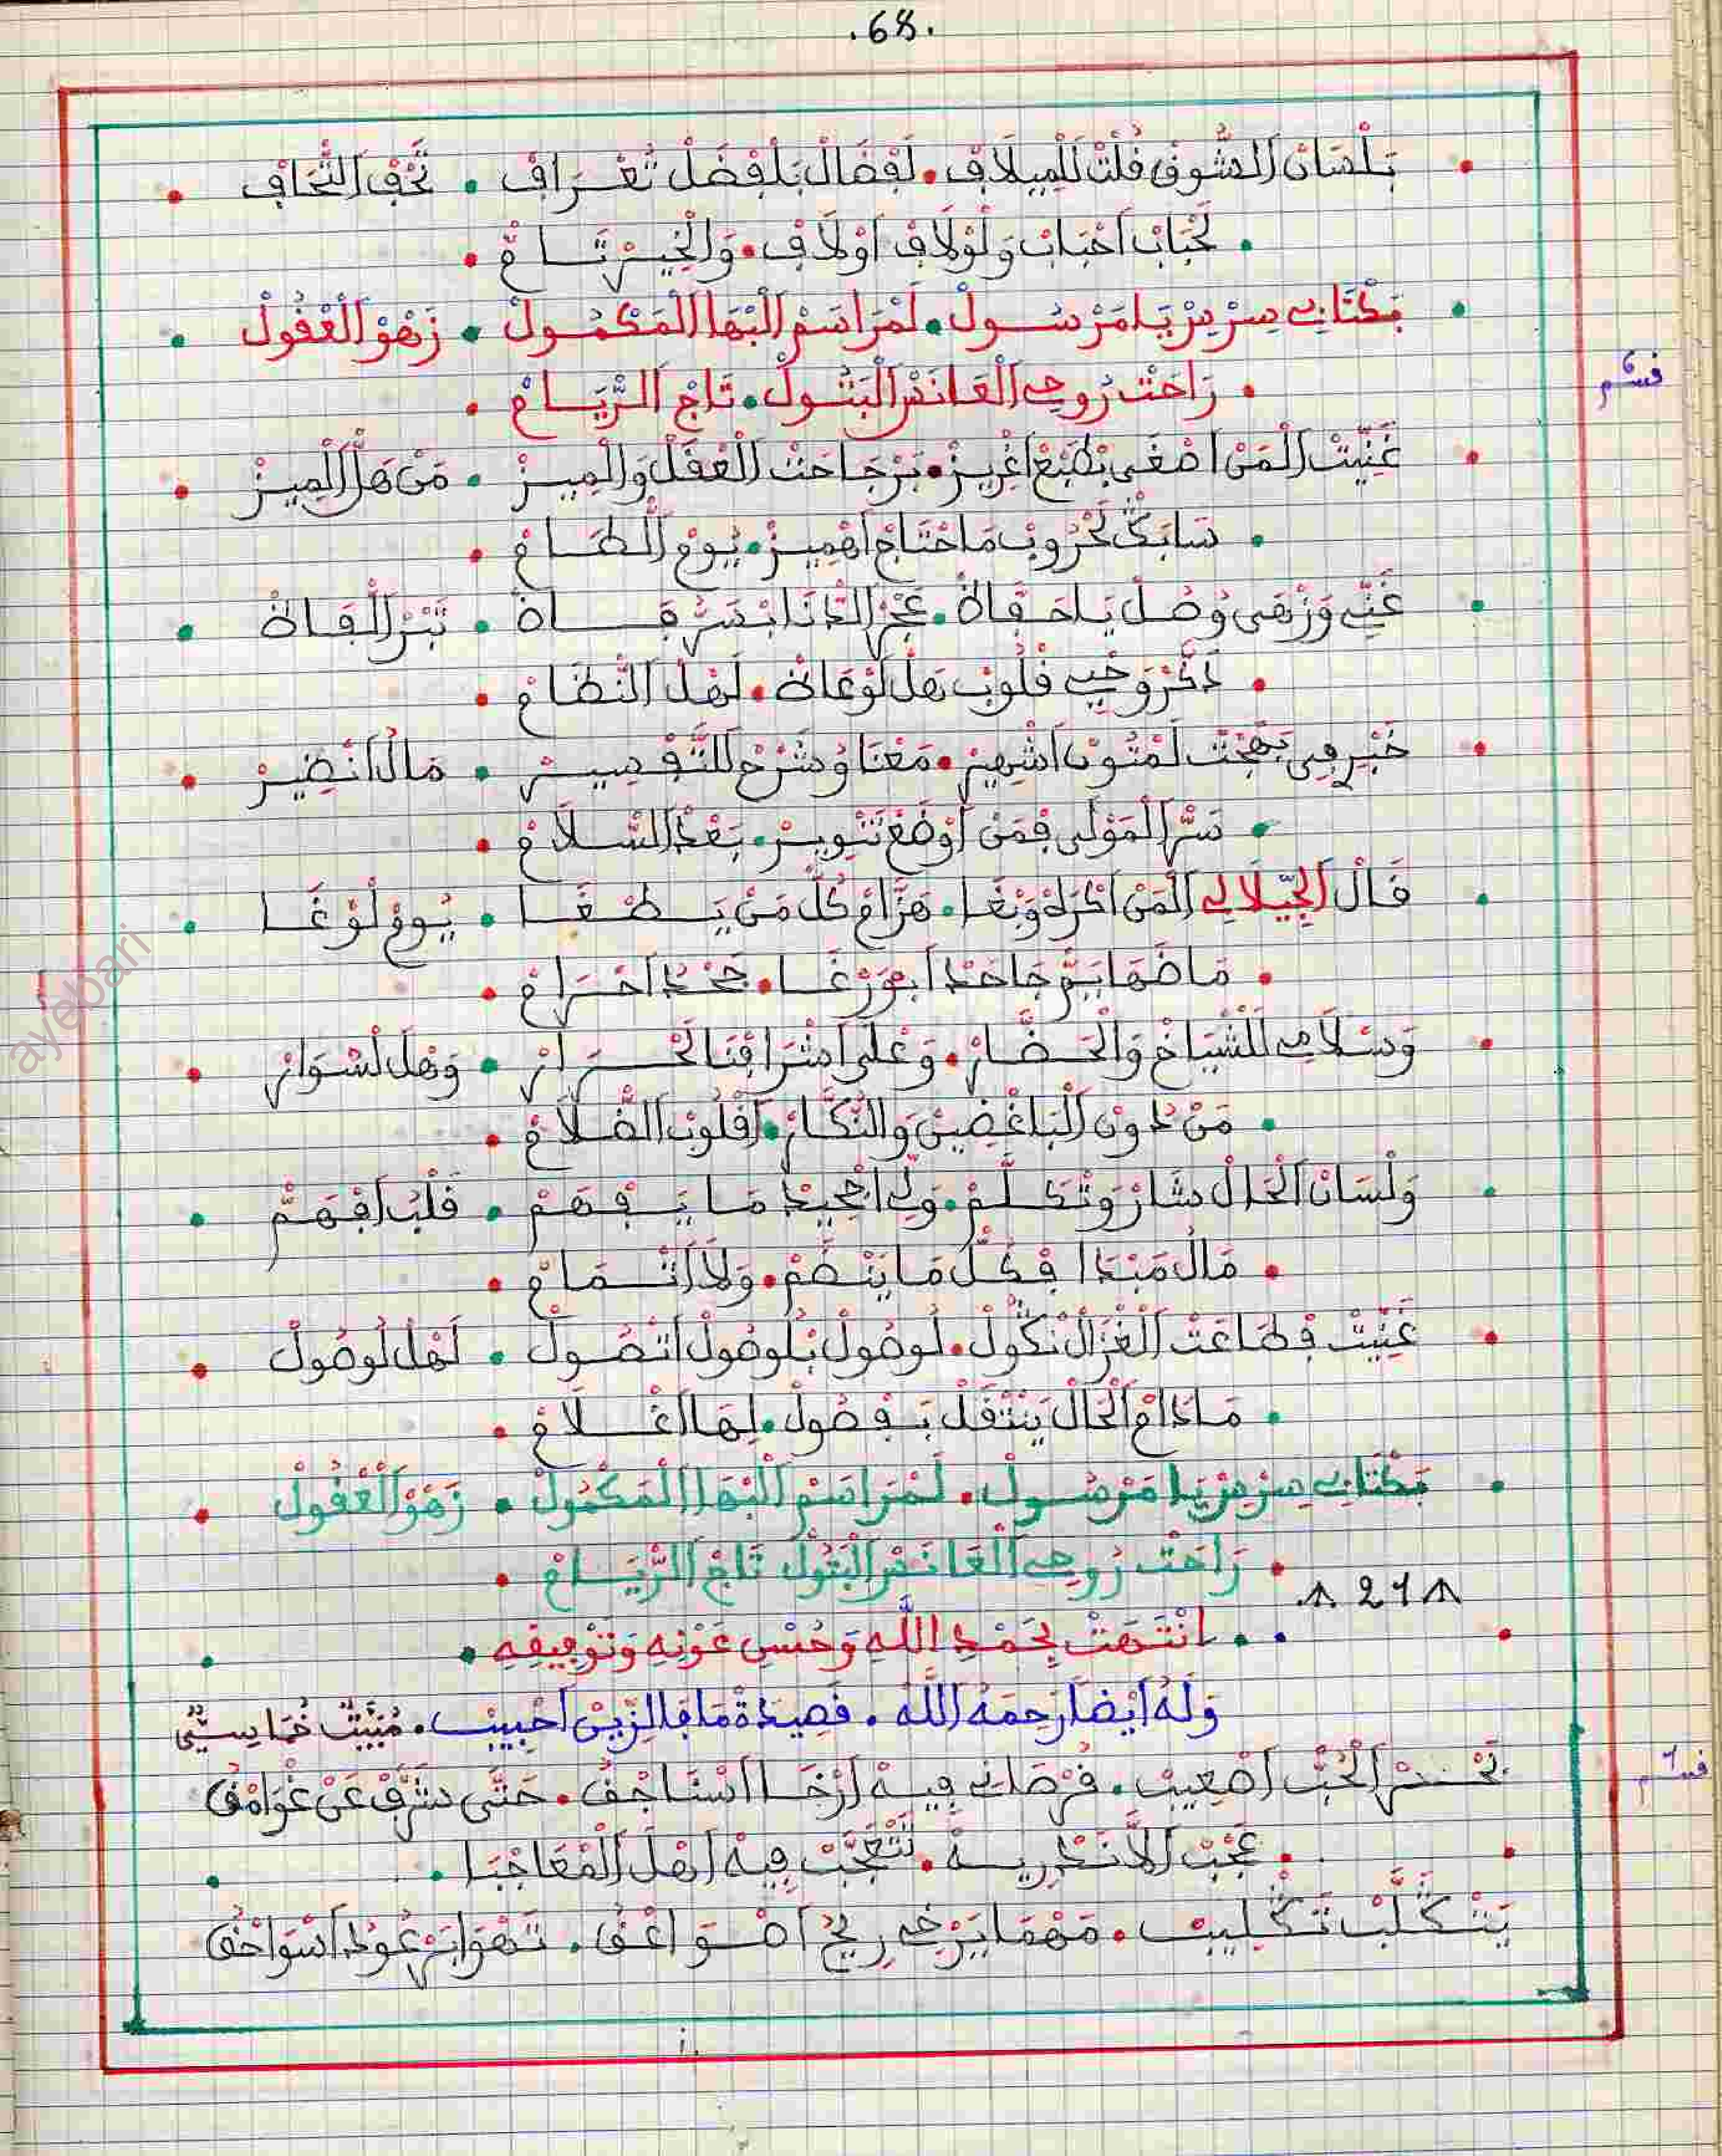 .68.
بَلْسَانْ الشُّوقْ قُلْتْ لَلْمِيلَافْ • لَفْضَالْ بَلْفْضَلْ تُعْرَافْ • تَحْفْ التّْحَافْ
لَحْبَابْ احْبَابْ وَلَوْلَافْ اوْلَافْ • وَالْخِيرْ تَامْ
بَكْتَابِي سِرْ يَا مَرْسُولْ • لَمْرَاسَمْ الْبْهَا الْمَكْمُولْ • زَهْوْ الْعْقُولْ
رَاحَتْ رُوحِي الْعَانَسْ الْبَتُولْ • تَاجْ الرّْيَامْ
قسم 6
غَنِّيتْ الْمَنْ اصْغَى بْطَبْعْ اغْرِيزْ • بَرْجَاحَتْ الْعْقَلْ وَالْمِيزْ • مَنْ هَلْ الْمِيزْ
سَابَكْ لَحْرُوبْ مَا احْتَاجْ اهْمِيزْ • يُومْ الطَّامْ
غَنِّي وَزْهَى وُصُلْ يَا حَفَّاظْ • • تَبْرْ الْفَاظْ
دَكَّرْ وَحْيِي قْلُوبْ هَلْ لَوْعَاظْ • لَهْلْ النّْظَامْ
خَبِيرْ فِي بَهْجْتْ لَمْتُونْ اشْهِيرْ • مَعْنَا وُشَرْحْ لَلتَّفْسِيرْ • مَالُ انْضِيرْ
سَرّْ الْمَوْلَى فْمَنْ اوْضَعْ تَنْوِيرْ • بَعْدْ السّْلَامْ
قَالْ الْجِيلَالِي الْمَنْ اكْرَهْ وَبْغَا • هَزَّامْ كُلّْ مَنْ يَطْغَا • يُومْ لَوْغَا
مَا ضَهَانِي جَاحَدْ ابْوَرْغَا • جَحْدُ احْرَامْ
وَسْلَامِي لَلشّْيَاخْ وَالْحَضَّارْ • وَعْلَى اشْرَافْنَا لَحْرَارْ • وَهْلْ لَسْوَارْ
مَنْ دُونْ الْبَاغْضِينْ وَالنُّكَّارْ • اقْلُوبْ الظّْلَامْ
وَلْسَانْ الْحَالْ شَارْ وَتْكَلَّمْ • وَلِّي اجْحِيدْ مَا يَفْهَمْ • قَلْبُ افْهَمْ
مَالُ مَبْدَا فْكُلّْ مَا يَنْضَمْ • وَلَا انْتْمَامْ
غَنِّيتْ فْطَاعَتْ الْغْزَالْ نْكُولْ • لُوصُولْ بْلُوصُولْ اتْصُولْ • لَهْلْ لُوصُولْ
مَادَامْ الْحَالْ يَنْتْقَلْ بَفْصُولْ • لِهَا اغْلَامْ
بَكْتَابِي سِرْ يَا مَرْسُولْ • لَمْرَاسَمْ الْبْهَا الْمَكْمُولْ • زَهْوْ الْعْقُولْ
رَاحَتْ رُوحِي الْعَانَسْ الْبَتُولْ تَاجْ الرّْيَامْ
21
انْتَهَتْ بِحَمْدِ اللَّهِ وَحُسْنِ عَوْنِهِ وَتَوْفِيقِهِ
وَلَهُ أَيْضاً رَحِمَهُ اللَّهُ • قَصِيدَةْ مَا فَالزِّينْ احْبِيبْ • مْبَيَّتْ خْمَاسِي
بَحْرْ الْحُبّْ اصْعِيبْ • فُرْصَانِي فِيهْ ارْخَا اسْنَاجْقُ • حَتَّى شَرَّفْ عَنْ غْوَامْقُ
قسم 1
عَجْبْ الَانَدْرِيسَهْ • تَتْعَجَّبْ فِيهْ اهْلْ الْمْعَاجْبَا
يَتْكَلَّبْ تَكْلِيبْ • مَهْمَا يَرْخِي رِيحُ اصْوَاعْقُ • تَهْوَا بَرْعُودُ اسْوَاحْقُ
ayebari